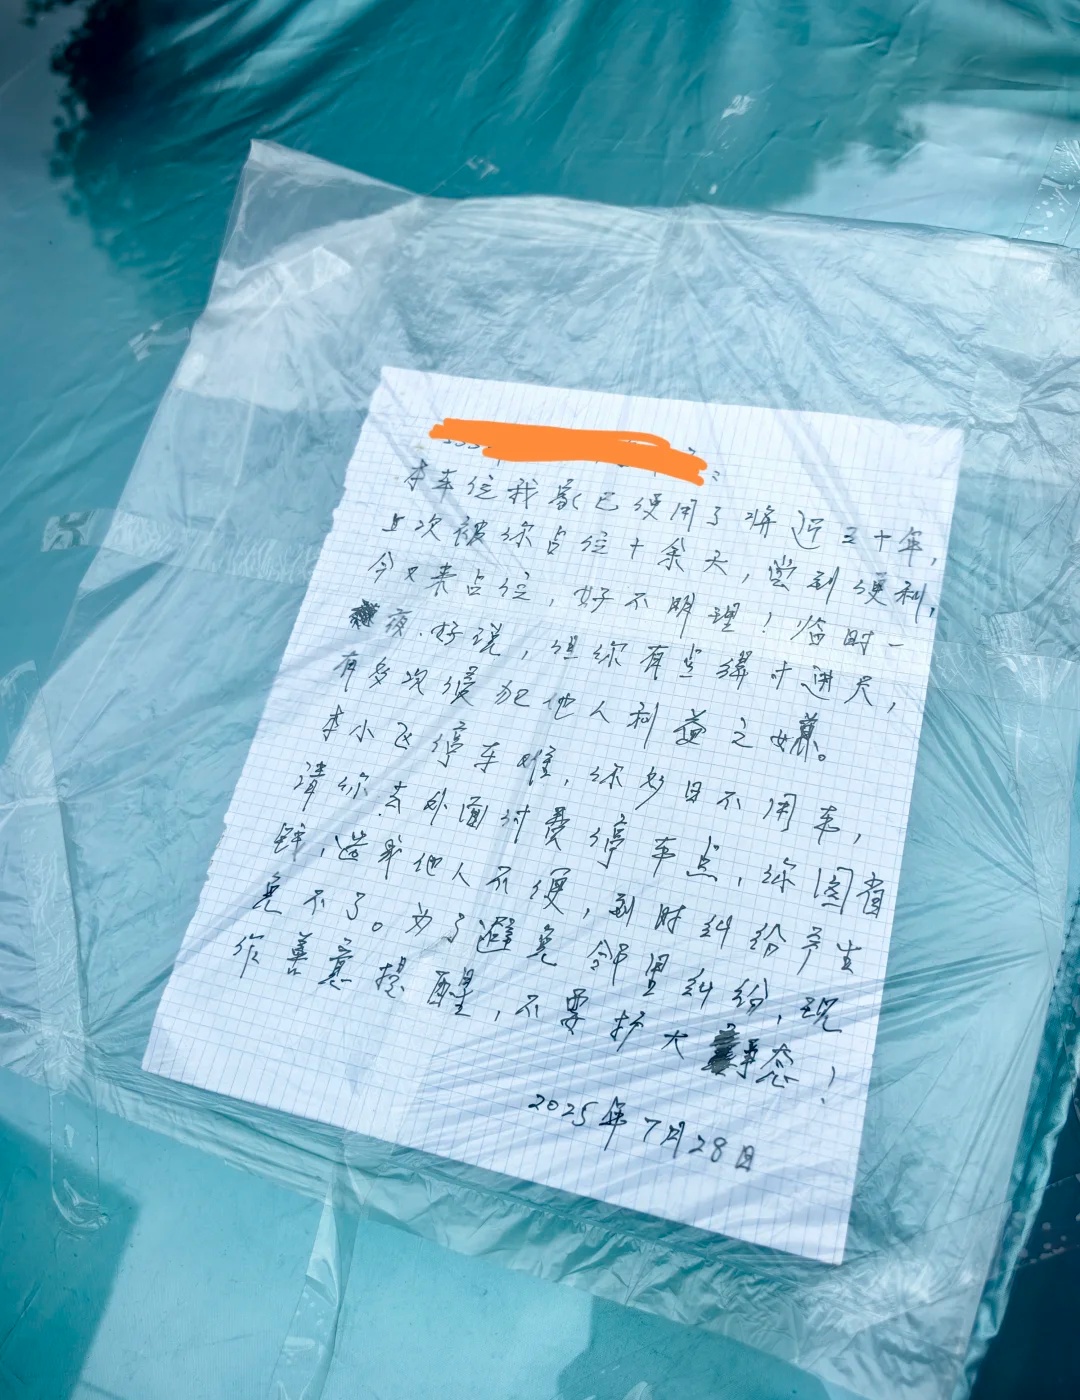 本车位我家已使用了将近三十年，
上次被你占位十余天，尝到便利，
今又来占位，好不明理！临时一
夜.好说，但你有点得寸进尺，
有多次侵犯他人利益之嫌。
本小区停车难，你多日不用车，
请你去外面付费停车点，你图省
钱，造成他人不便，到时纠纷产生
免不了。为了避免邻里纠纷，现
作善意提醒，不要扩大事态！
2025年7月28日